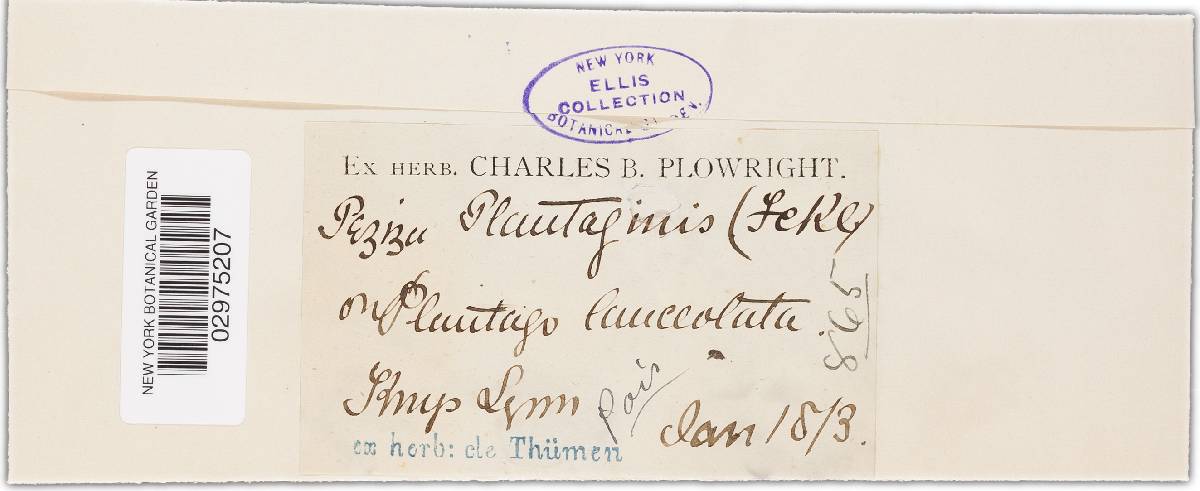 NEW YORK
ELLIS
COLLECTION
BOTANICAL GARDEN.
NEW YORK BOTANICAL GARDEN
02975207
Ex HERB. CHARLES B. PLOWRIGHT.
Peziza Plantaginis (Fckl)
on Plantago lanceolata.
865
Kings Lynn
Jan 1873.
ex herb: de Thümen